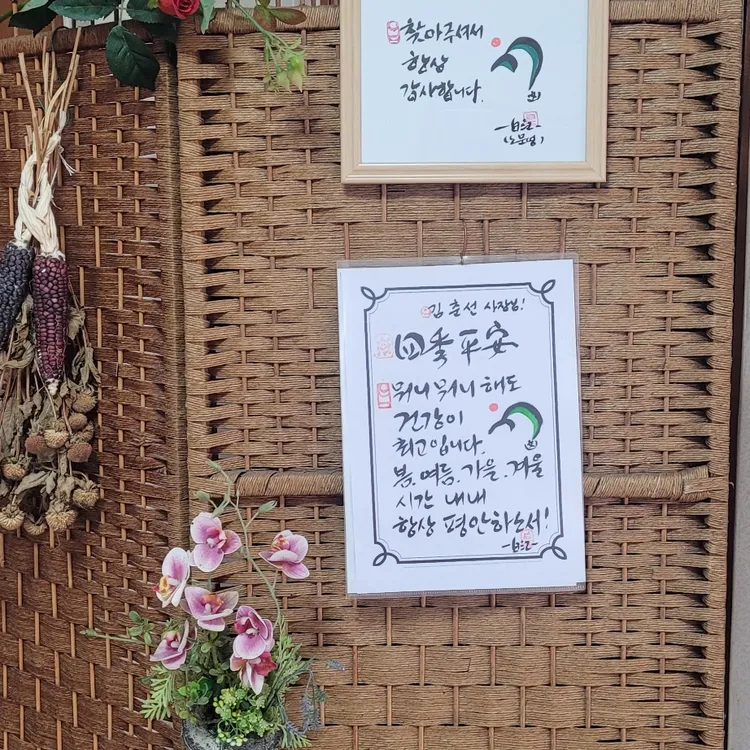 찾아주셔서
항상
감사합니다.
(노문평)
김춘선 사장님!
四季平安
뭐니 뭐니 해도
건강이
최고입니다.
봄.여름.가을.겨울
시간 내내
항상 평안하소서!